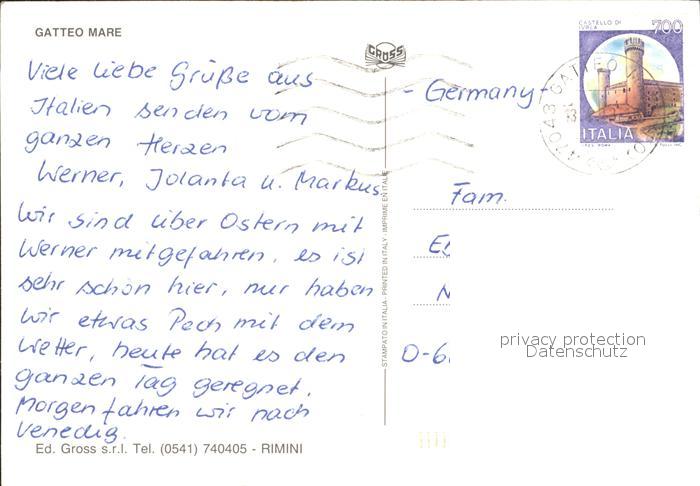 GATTEO MARE
GROSS
CASTELLO DI
IVREA
700
ITALIA
Viele liebe Grüße aus
Italien senden vom
ganzen Herzen
Werner, Jolanta u. Markus
Wir sind über Ostern mit
Werner mitgefahren, es ist
sehr schön hier, nur haben
wir etwas Pech mit dem
Wetter, heute hat es den
ganzen Tag geregnet.
Morgen fahren wir nach
Venedig.
Ed. Gross s.r.l. Tel. (0541) 740405 - RIMINI
STAMPATO IN ITALIA - PRINTED IN ITALY - IMPRIME EN ITALIE
- Germany -
Fam.
D-6
privacy protection
Datenschutz
47043 GATTEO